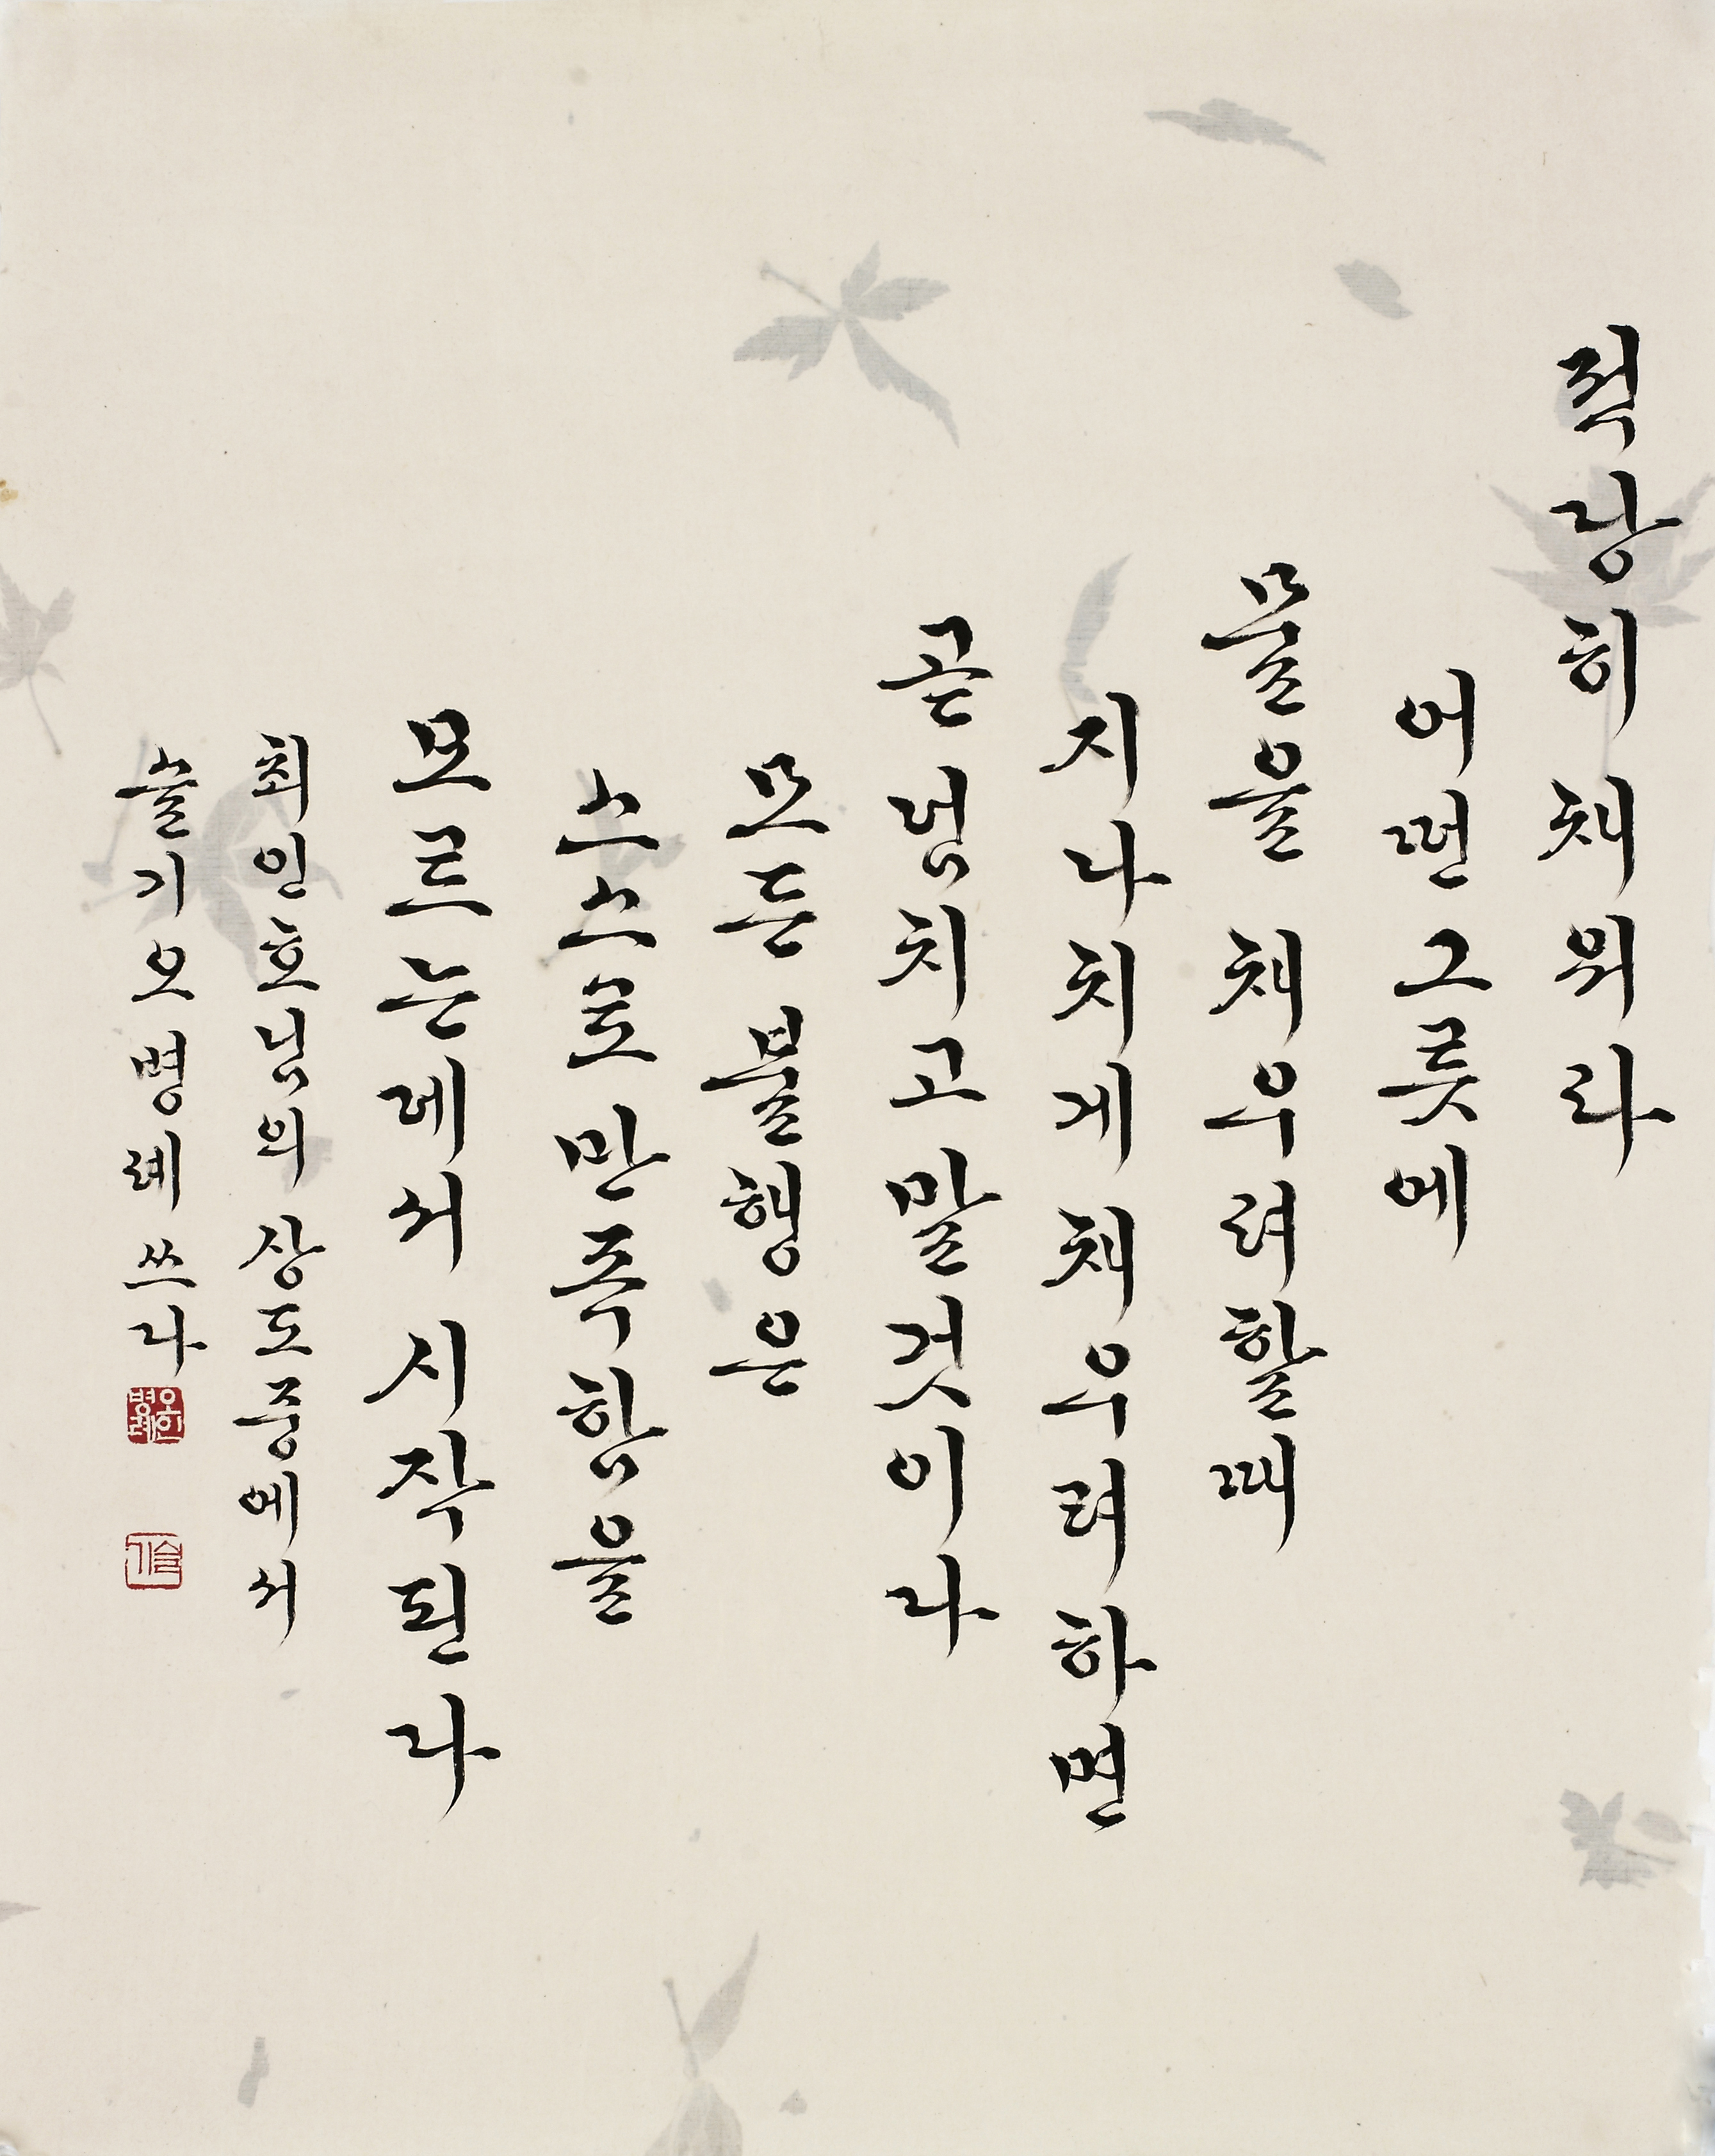 적당히 채워라
어떤 그릇에
물을 채우려할때
지나치게 채우려하면
곧 넘치고 말것이다
모든 불행은
스스로 만족함을
모르는데서 시작된다
최인호님의 상도중에서
슬기오명례쓰다